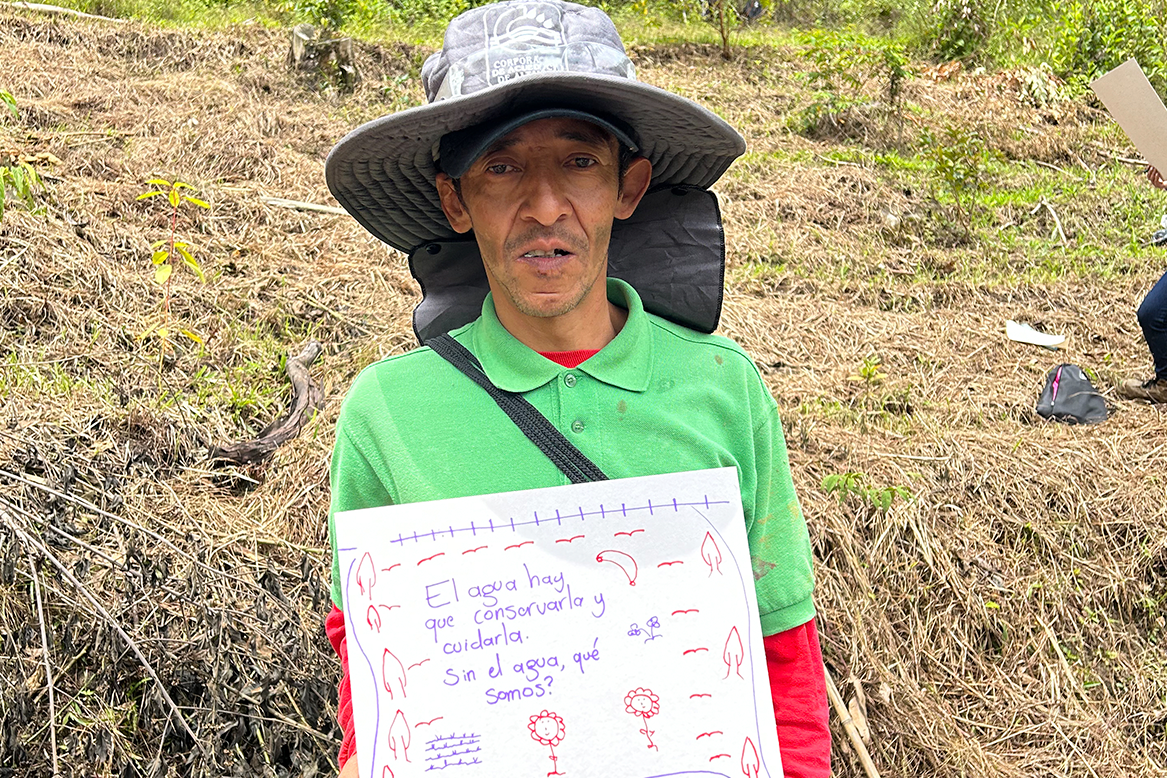 CORPORA
DE ACUED
DE A
El agua hay
que conservarla y
cuidarla.
Sin el agua, qué
somos?